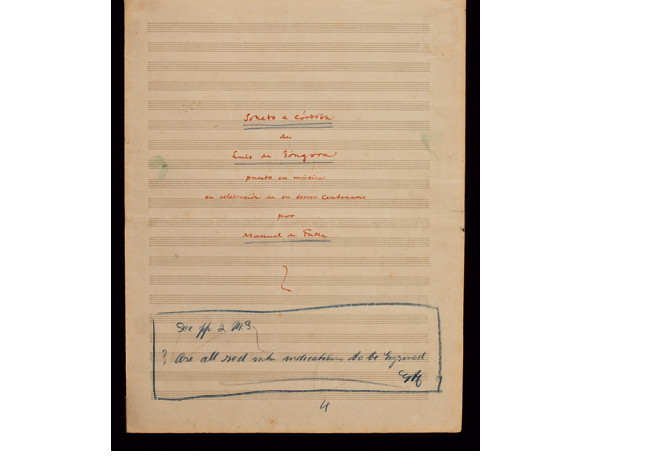 Soneto a Córdoba
de
Luis de Góngora
puesto en música
en celebración de su tercer Centenario
por
Manuel de Falla
See pp 2 MS
? Are all red ink indications to be Engraved
4